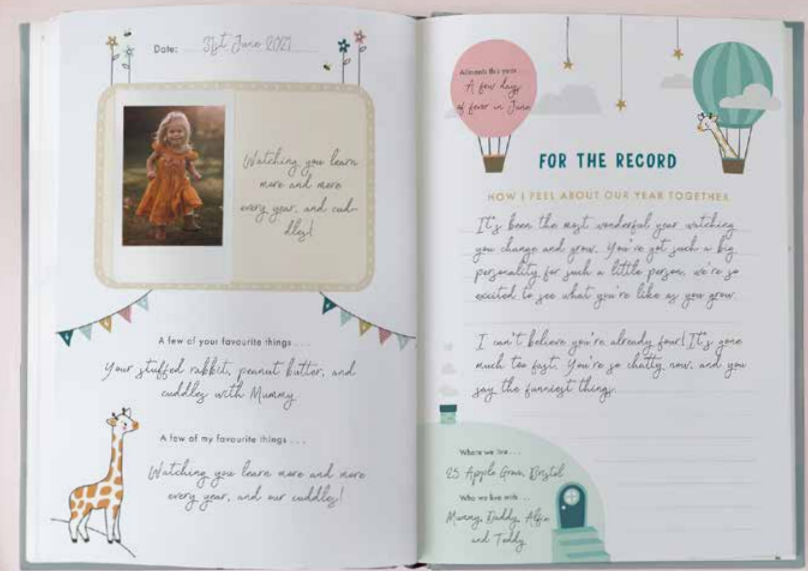 Date: 31st June 2021
Watching you learn
more and more
every year, and cud-
dles!
A few of your favourite things . . .
Your stuffed rabbit, peanut butter, and
cuddles with Mummy
A few of my favourite things . . .
Watching you learn more and more
every year, and our cuddles!
Ailments this year...
A few days
of fever in June
FOR THE RECORD
HOW I FEEL ABOUT OUR YEAR TOGETHER
It's been the most wonderful year watching
you change and grow. You've got such a big
personality for such a little person, we're so
excited to see what you're like as you grow.
I can't believe you're already four! It's gone
much too fast. You're so chatty now, and you
say the funniest things.
Where we live . . .
25 Apple Grove, Bristol
Who we live with . . .
Mummy, Daddy, Alfie
and Teddy